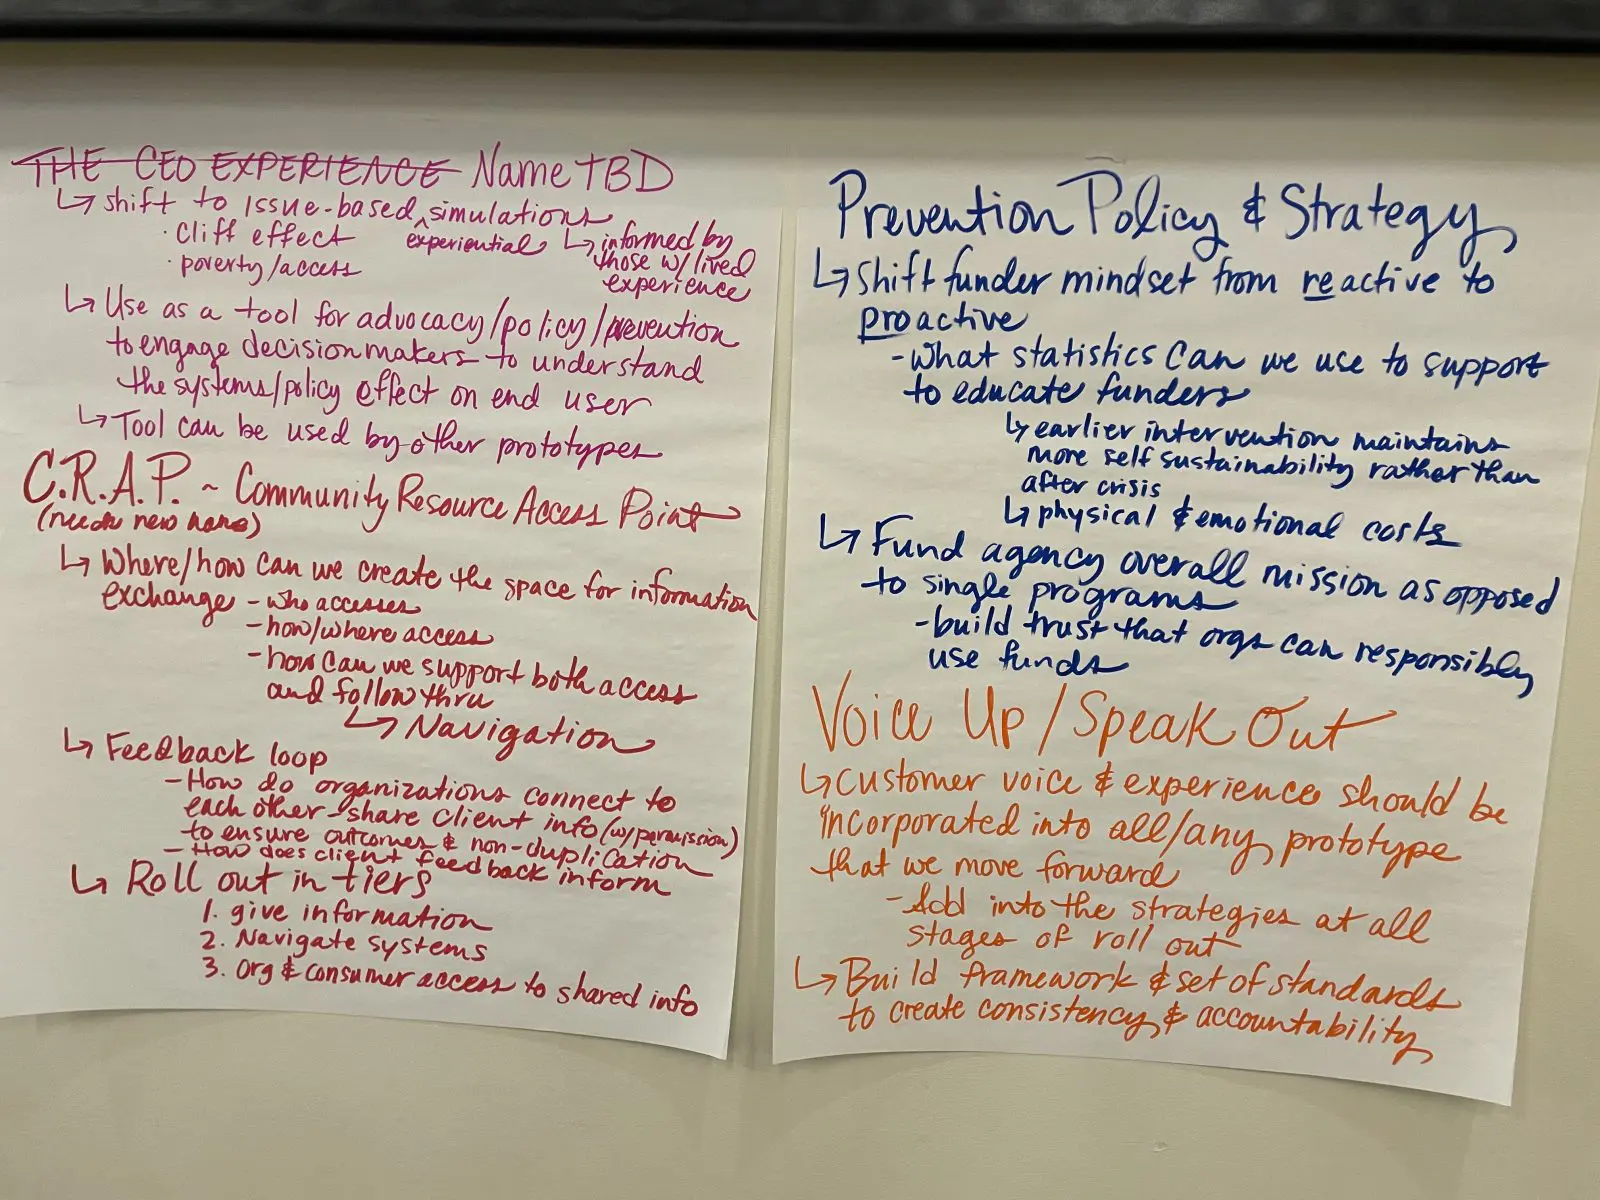 THE CEO EXPERIENCE Name TBD
↳ shift to issue-based ^ simulations
· cliff effect experiential ↳ informed by
· poverty/access those w/ lived
experience
↳ Use as a tool for advocacy/policy/prevention
to engage decision makers to understand
the systems/policy effect on end user
↳ Tool can be used by other prototypes
C.R.A.P. ~ Community Resource Access Point
(needs new name)
↳ Where/how can we create the space for information
exchange - who accesses
- how/where access
- how can we support both access
and follow thru
↳ Navigation
↳ Feedback loop
- How do organizations connect to
each other - share client info (w/permission)
to ensure outcomes & non-duplication
- How does client feedback inform
↳ Roll out in tiers
1. give information
2. Navigate systems
3. Org & consumer access to shared info
Prevention Policy & Strategy
↳ Shift funder mindset from reactive to
proactive
- what statistics can we use to support
to educate funders
↳ earlier intervention maintains
more self sustainability rather than
after crisis
↳ physical & emotional costs
↳ Fund agency overall mission as opposed
to single programs
- build trust that orgs can responsibly
use funds
Voice Up / Speak Out
↳ Customer voice & experience should be
incorporated into all/any prototype
that we move forward
- Add into the strategies at all
stages of roll out
↳ Build framework & set of standards
to create consistency & accountability